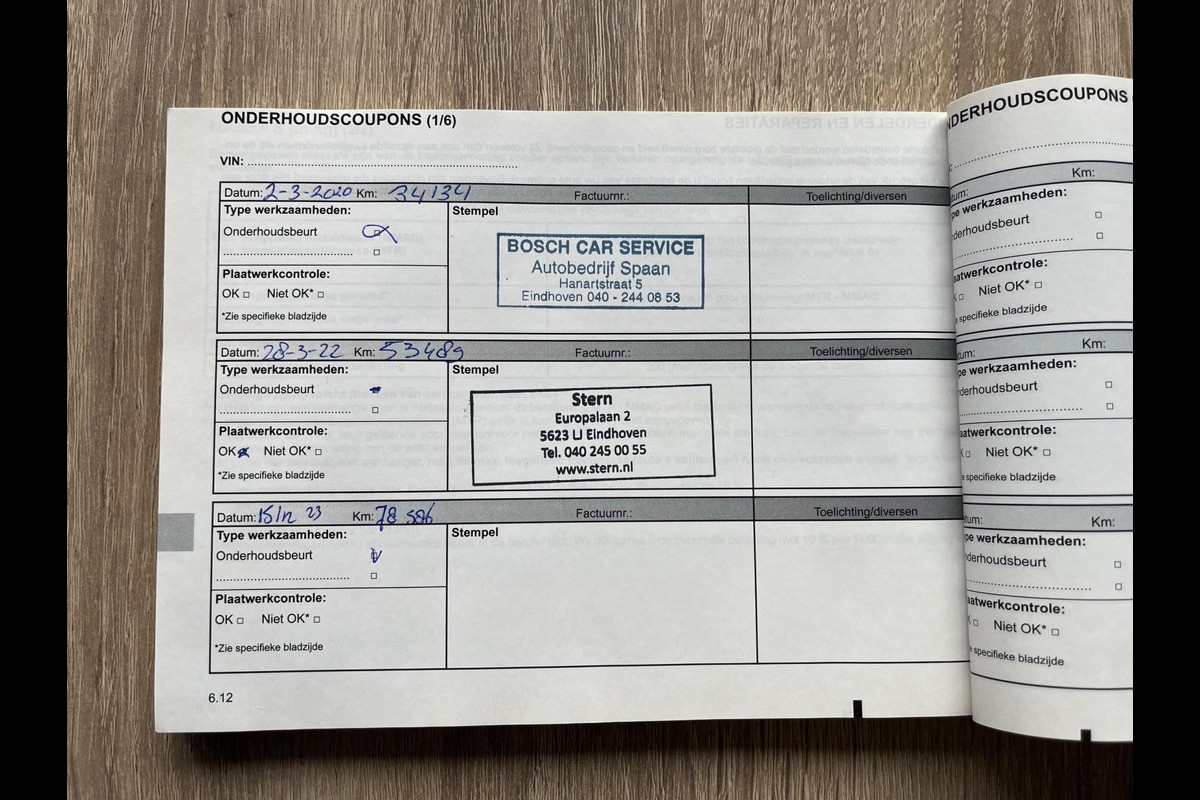 ONDERHOUDSCOUPONS (1/6)
VIN:
Datum: 2-3-2020 Km: 34134 Factuurnr.: Toelichting/diversen
Type werkzaamheden: Stempel
Onderhoudsbeurt
BOSCH CAR SERVICE
Autobedrijf Spaan
Hanartstraat 5
Eindhoven 040 - 244 08 53
Plaatwerkcontrole:
OK Niet OK*
*Zie specifieke bladzijde
Datum: 28-3-22 Km: 53489 Factuurnr.: Toelichting/diversen
Type werkzaamheden: Stempel
Onderhoudsbeurt
Stern
Europalaan 2
5623 LJ Eindhoven
Tel. 040 245 00 55
www.stern.nl
Plaatwerkcontrole:
OK Niet OK*
*Zie specifieke bladzijde
Datum: 15/12 23 Km: 78 586 Factuurnr.: Toelichting/diversen
Type werkzaamheden: Stempel
Onderhoudsbeurt
Plaatwerkcontrole:
OK Niet OK*
*Zie specifieke bladzijde
6.12
NDERHOUDSCOUPONS
tum: Km:
pe werkzaamheden:
nderhoudsbeurt
aatwerkcontrole:
Niet OK*
e specifieke bladzijde
tum: Km:
pe werkzaamheden:
derhoudsbeurt
aatwerkcontrole:
Niet OK*
specifieke bladzijde
tum: Km:
pe werkzaamheden:
derhoudsbeurt
aatwerkcontrole:
Niet OK*
e specifieke bladzijde